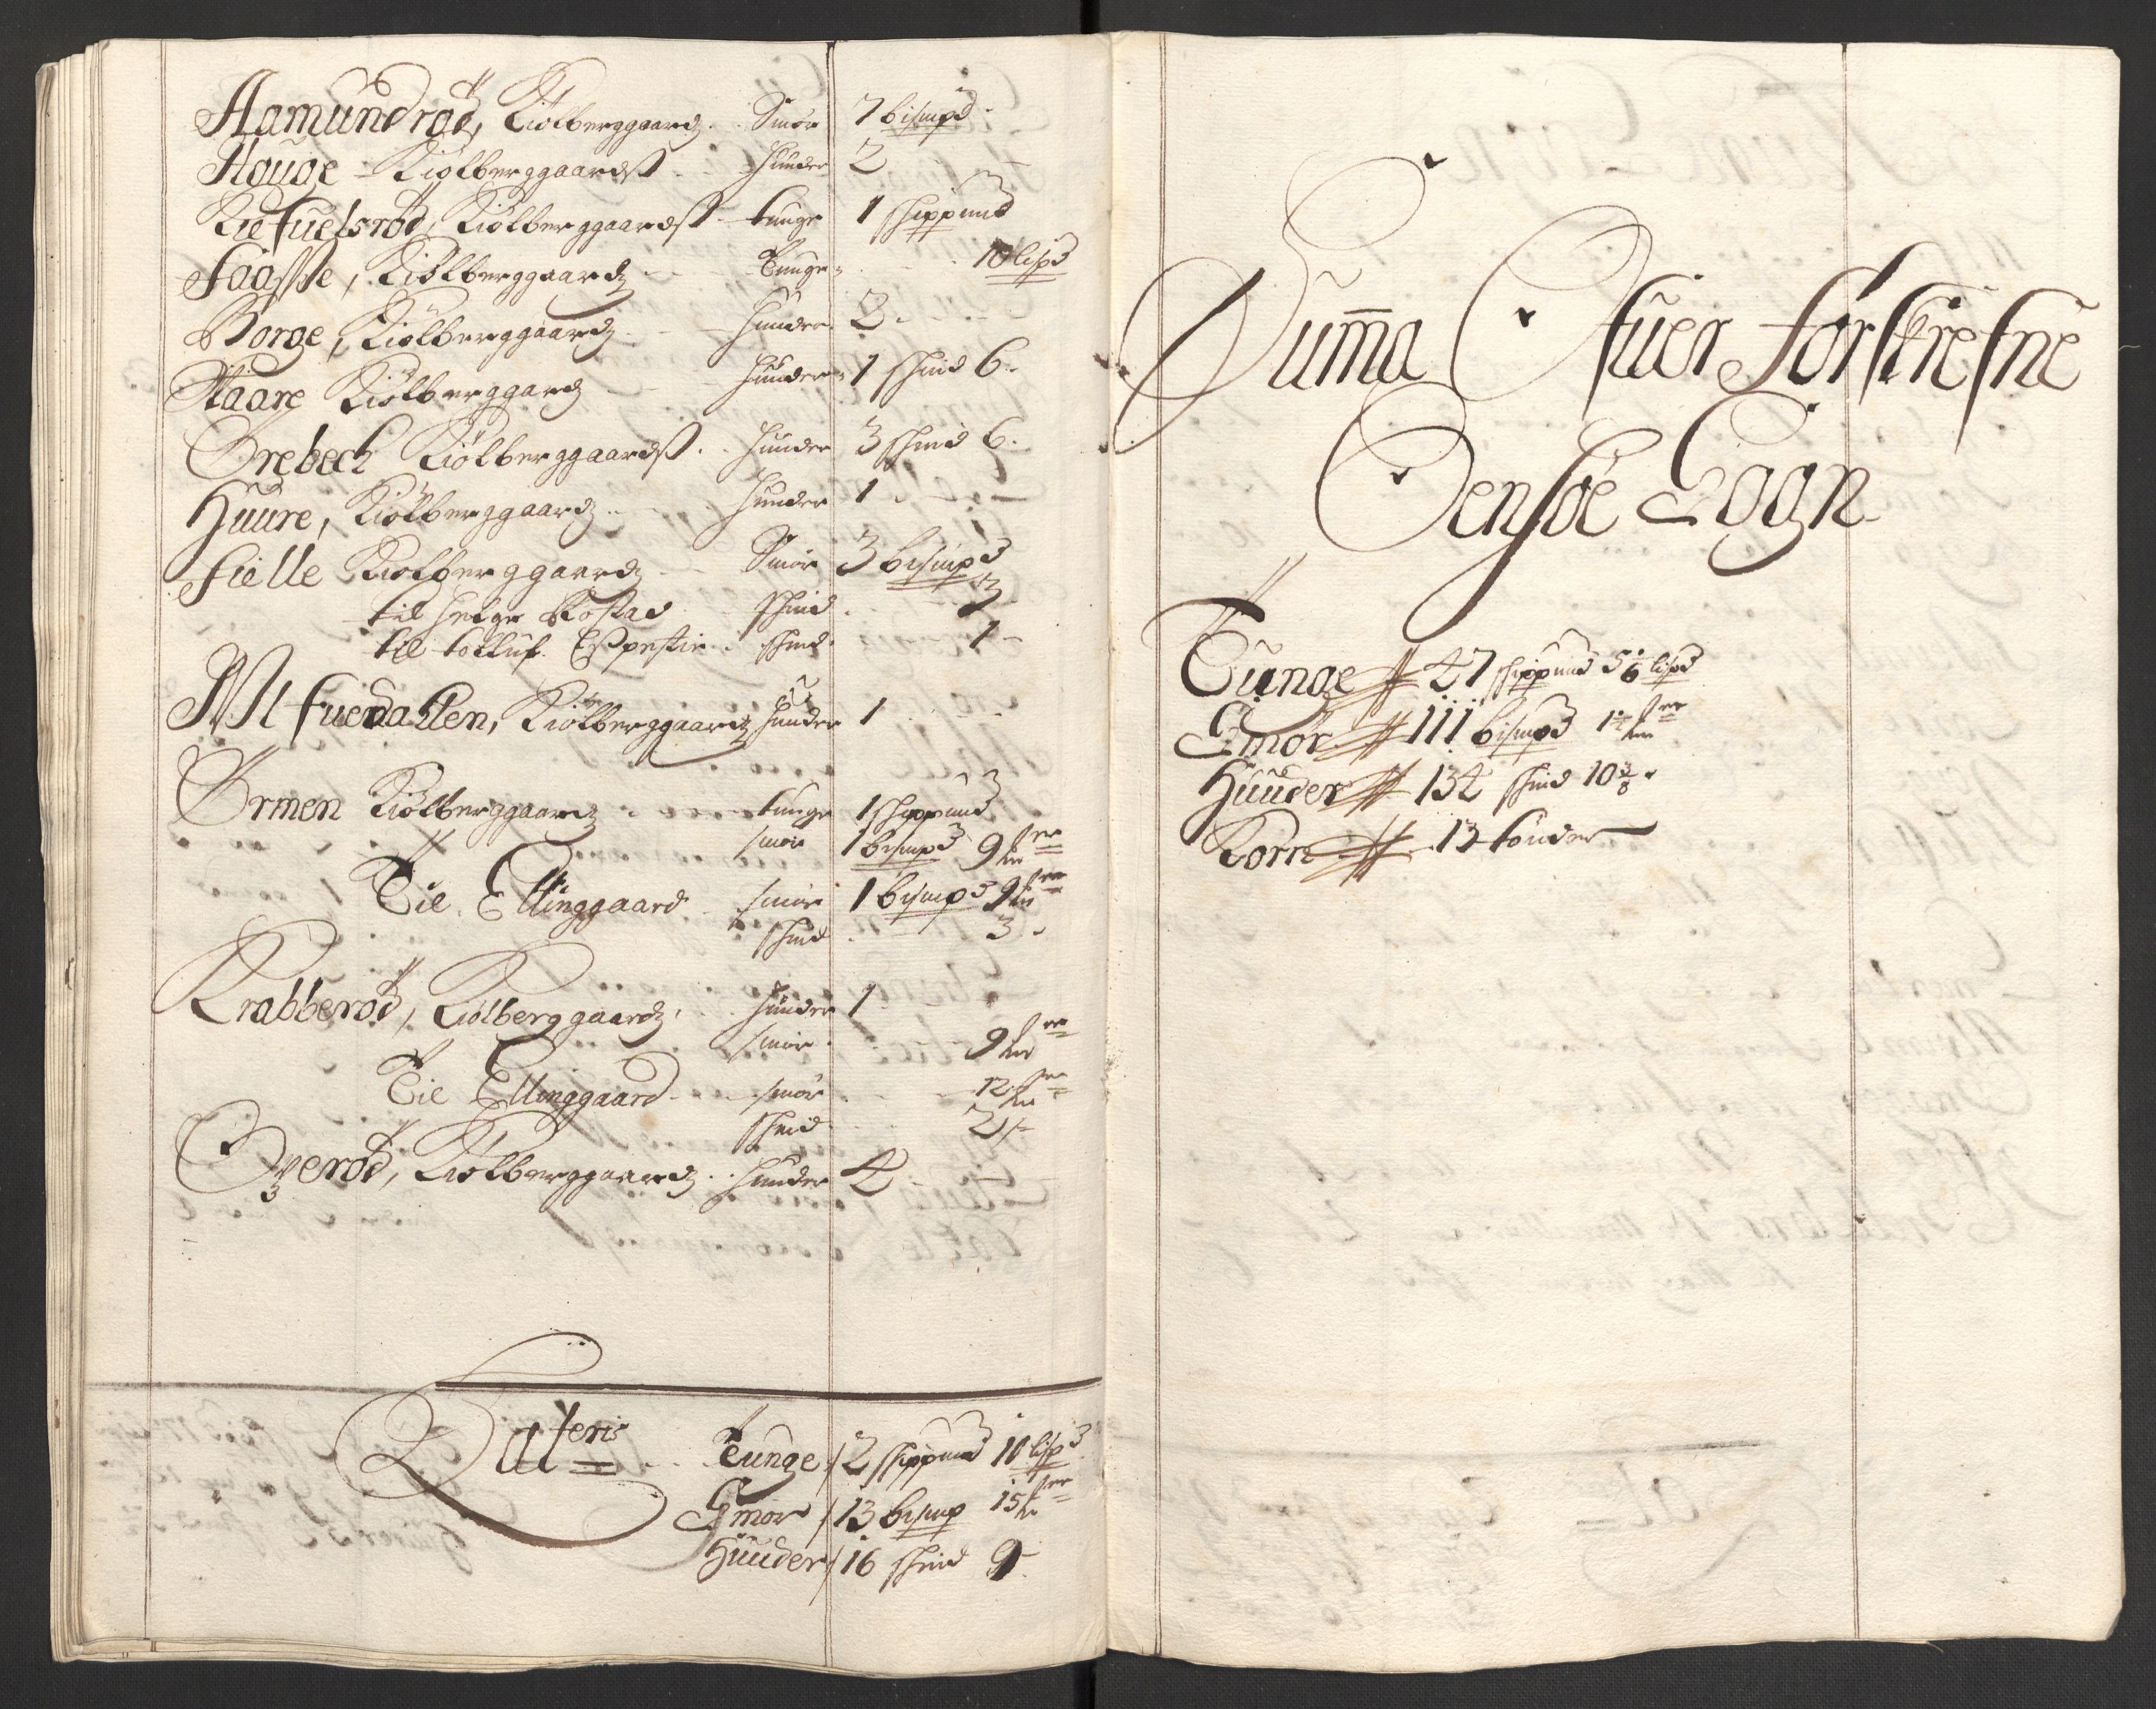 Aamundrød, Kiølberggaardz. Smør 7 bismpd.
Hauge Kiølberggaardst. Huuder 2
Kiølberggaardst tunge 1 skippund
Faaste, Kiølberggaardz Tunge 10 lispd
Borge, Kiølberggaardz Huuder. 2.
Skaare Kiølberggardz Huuder 1 skind 6.
Ørebech Kiølberggaardst. Huuder 3 skind 6.
Huure, Kiølberggaardz Huuder 1
Fielle Kiølberggaardz Smør 3 bismpd
til Helge Rostad skind 3
til tolluf skind 1
Kiølberggaardz Huuder 1
Ørmen Kiølberggaardz tunge 1 skippund
smør 1 bismpd 9
Til Ellinggaard smør 1 bismpd 9
skind 3
Krabberød, Kiølberggaardz. Huuder 1
smør. 9
Til Ellinggaard smør 12
skind 2
Kiølberggaardz. Huuder 4
Lateris Tunge 2 skippund 10 lispd
Smør 13 bismp 15
Huuder 16 skind 9
Summa Ofuer forskrefne
Oensøe Sogn
Tunge 47 skippund 5 1/6 lispd
Smør 111 bismpd
Huuder 134 skind 10 3/8
Korn 13 tønder